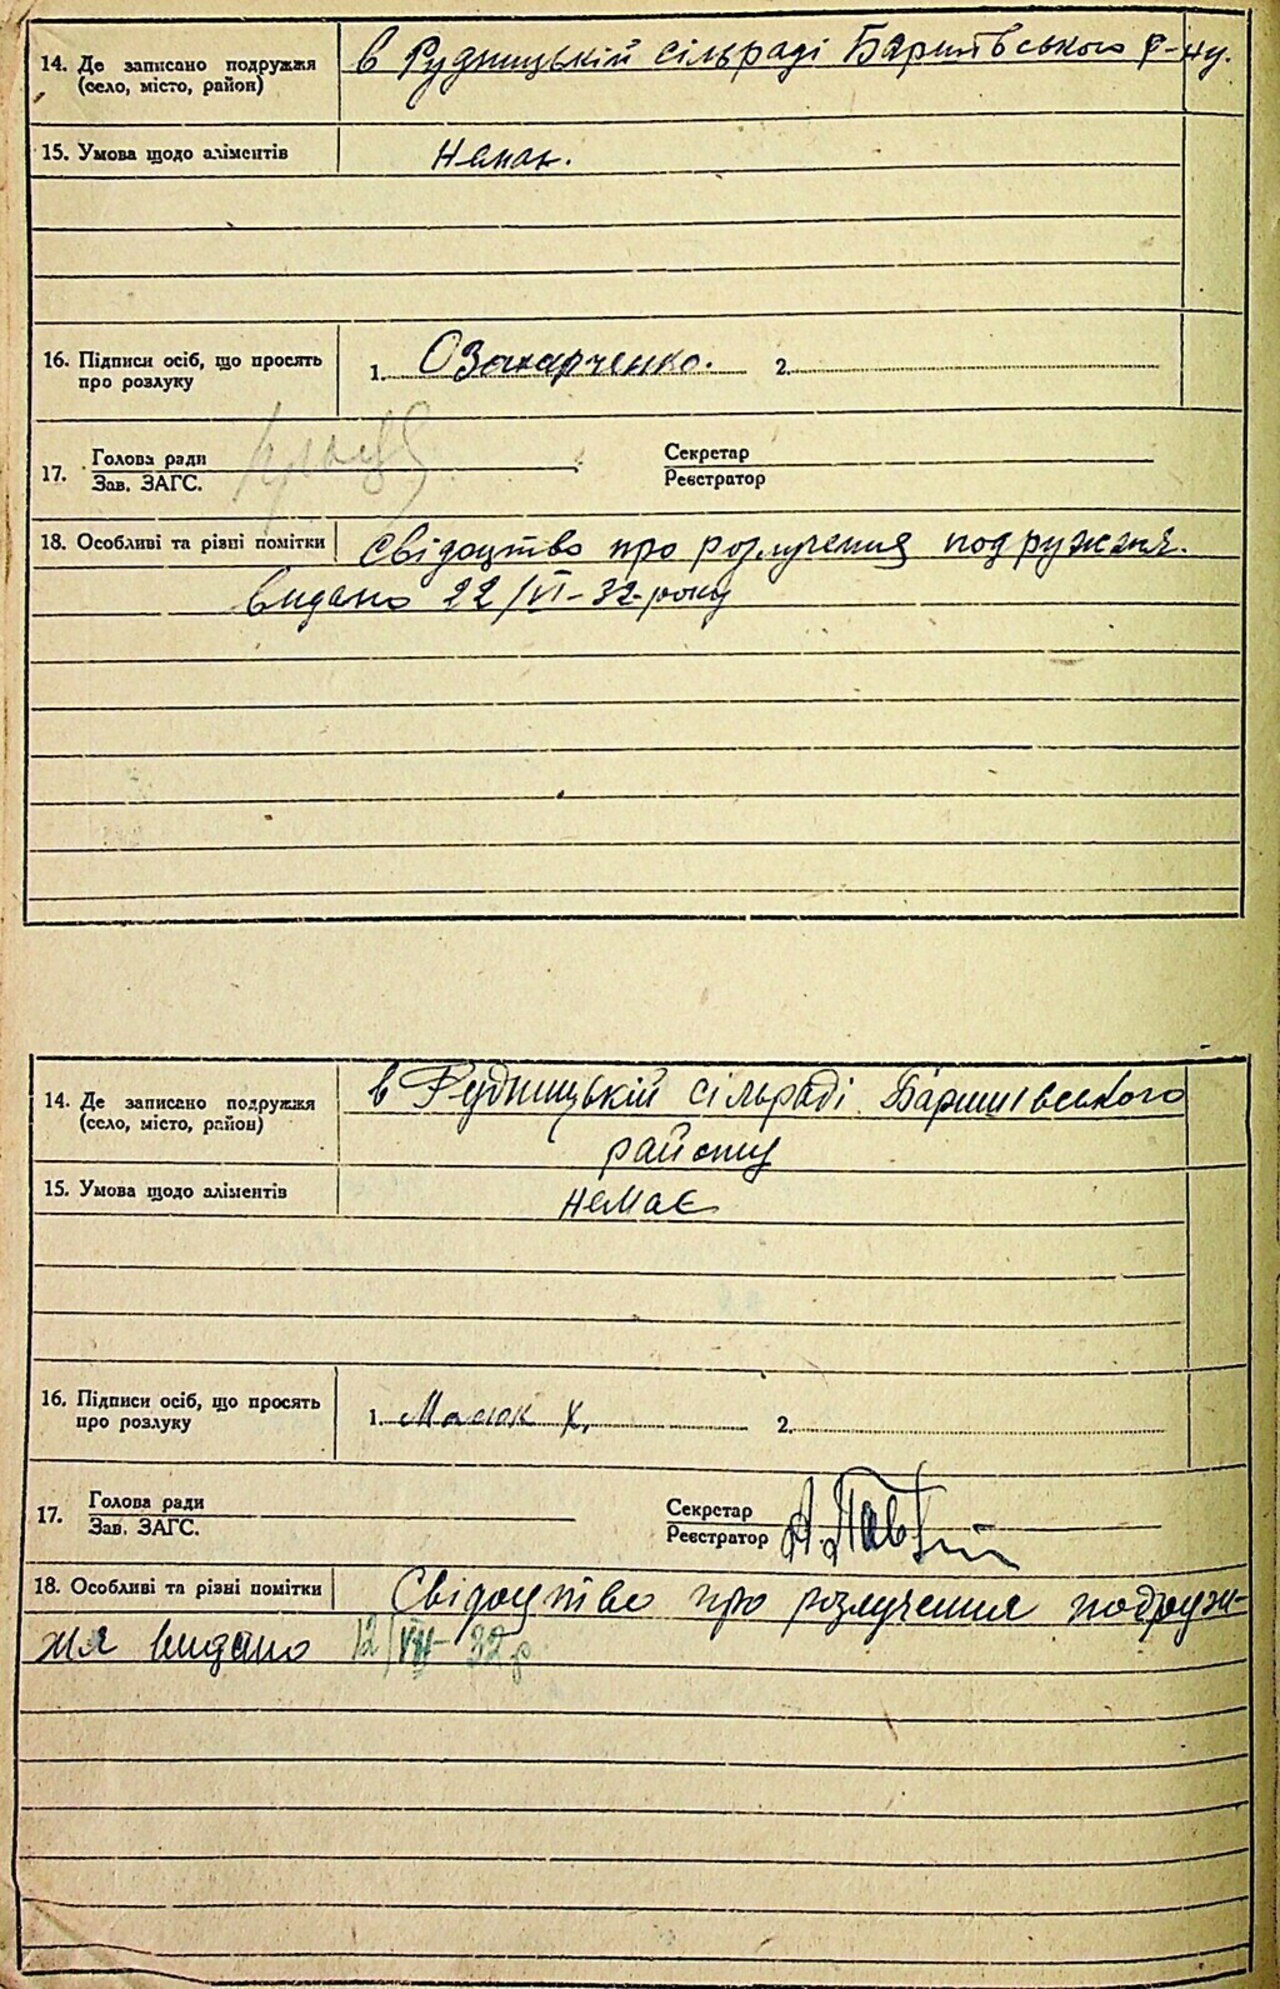 14. Де записано подружжя
(село, місто, район)
в Рудницькій сільраді Баришівського р-ну.
15. Умова щодо аліментів
Немає.
16. Підписи осіб, що просять
про розлуку
1. ОЗахарченко. 2.
17. Голова ради
Зав. ЗАГС.
Секретар
Реєстратор
18. Особливі та різні помітки Свідоцтво про розлучення подружжя.
видано 22/VI-32-року
14. Де записано подружжя
(село, місто, район)
в Рудницькій сільраді Баришівського
району
15. Умова щодо аліментів
немає
16. Підписи осіб, що просять
про розлуку
1. Масюк Х. 2.
17. Голова ради
Зав. ЗАГС.
Секретар
Реєстратор
18. Особливі та різні помітки Свідоцтво про розлучення подруж-
жя видано 12/VII-32 р